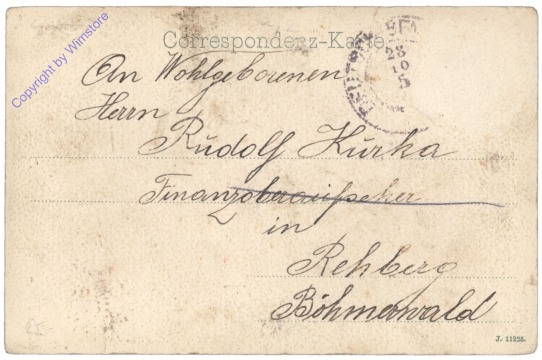 Copyright by Wimstore
Correspondenz-Karte.
23
10
5
An Wohlgeborenen
Herrn
Rudolf Kurka
Finanzoberaufseher
in
Rehberg
Böhmerwald
J. 11225.